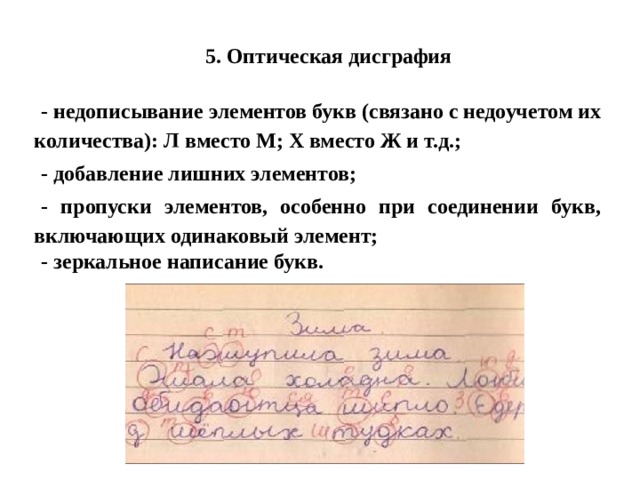 5. Оптическая дисграфия
- недописывание элементов букв (связано с недоучетом их
количества): Л вместо М; Х вместо Ж и т.д.;
- добавление лишних элементов;
- пропуски элементов, особенно при соединении букв,
включающих одинаковый элемент;
- зеркальное написание букв.
Зима.
с т
зима.
холадна.